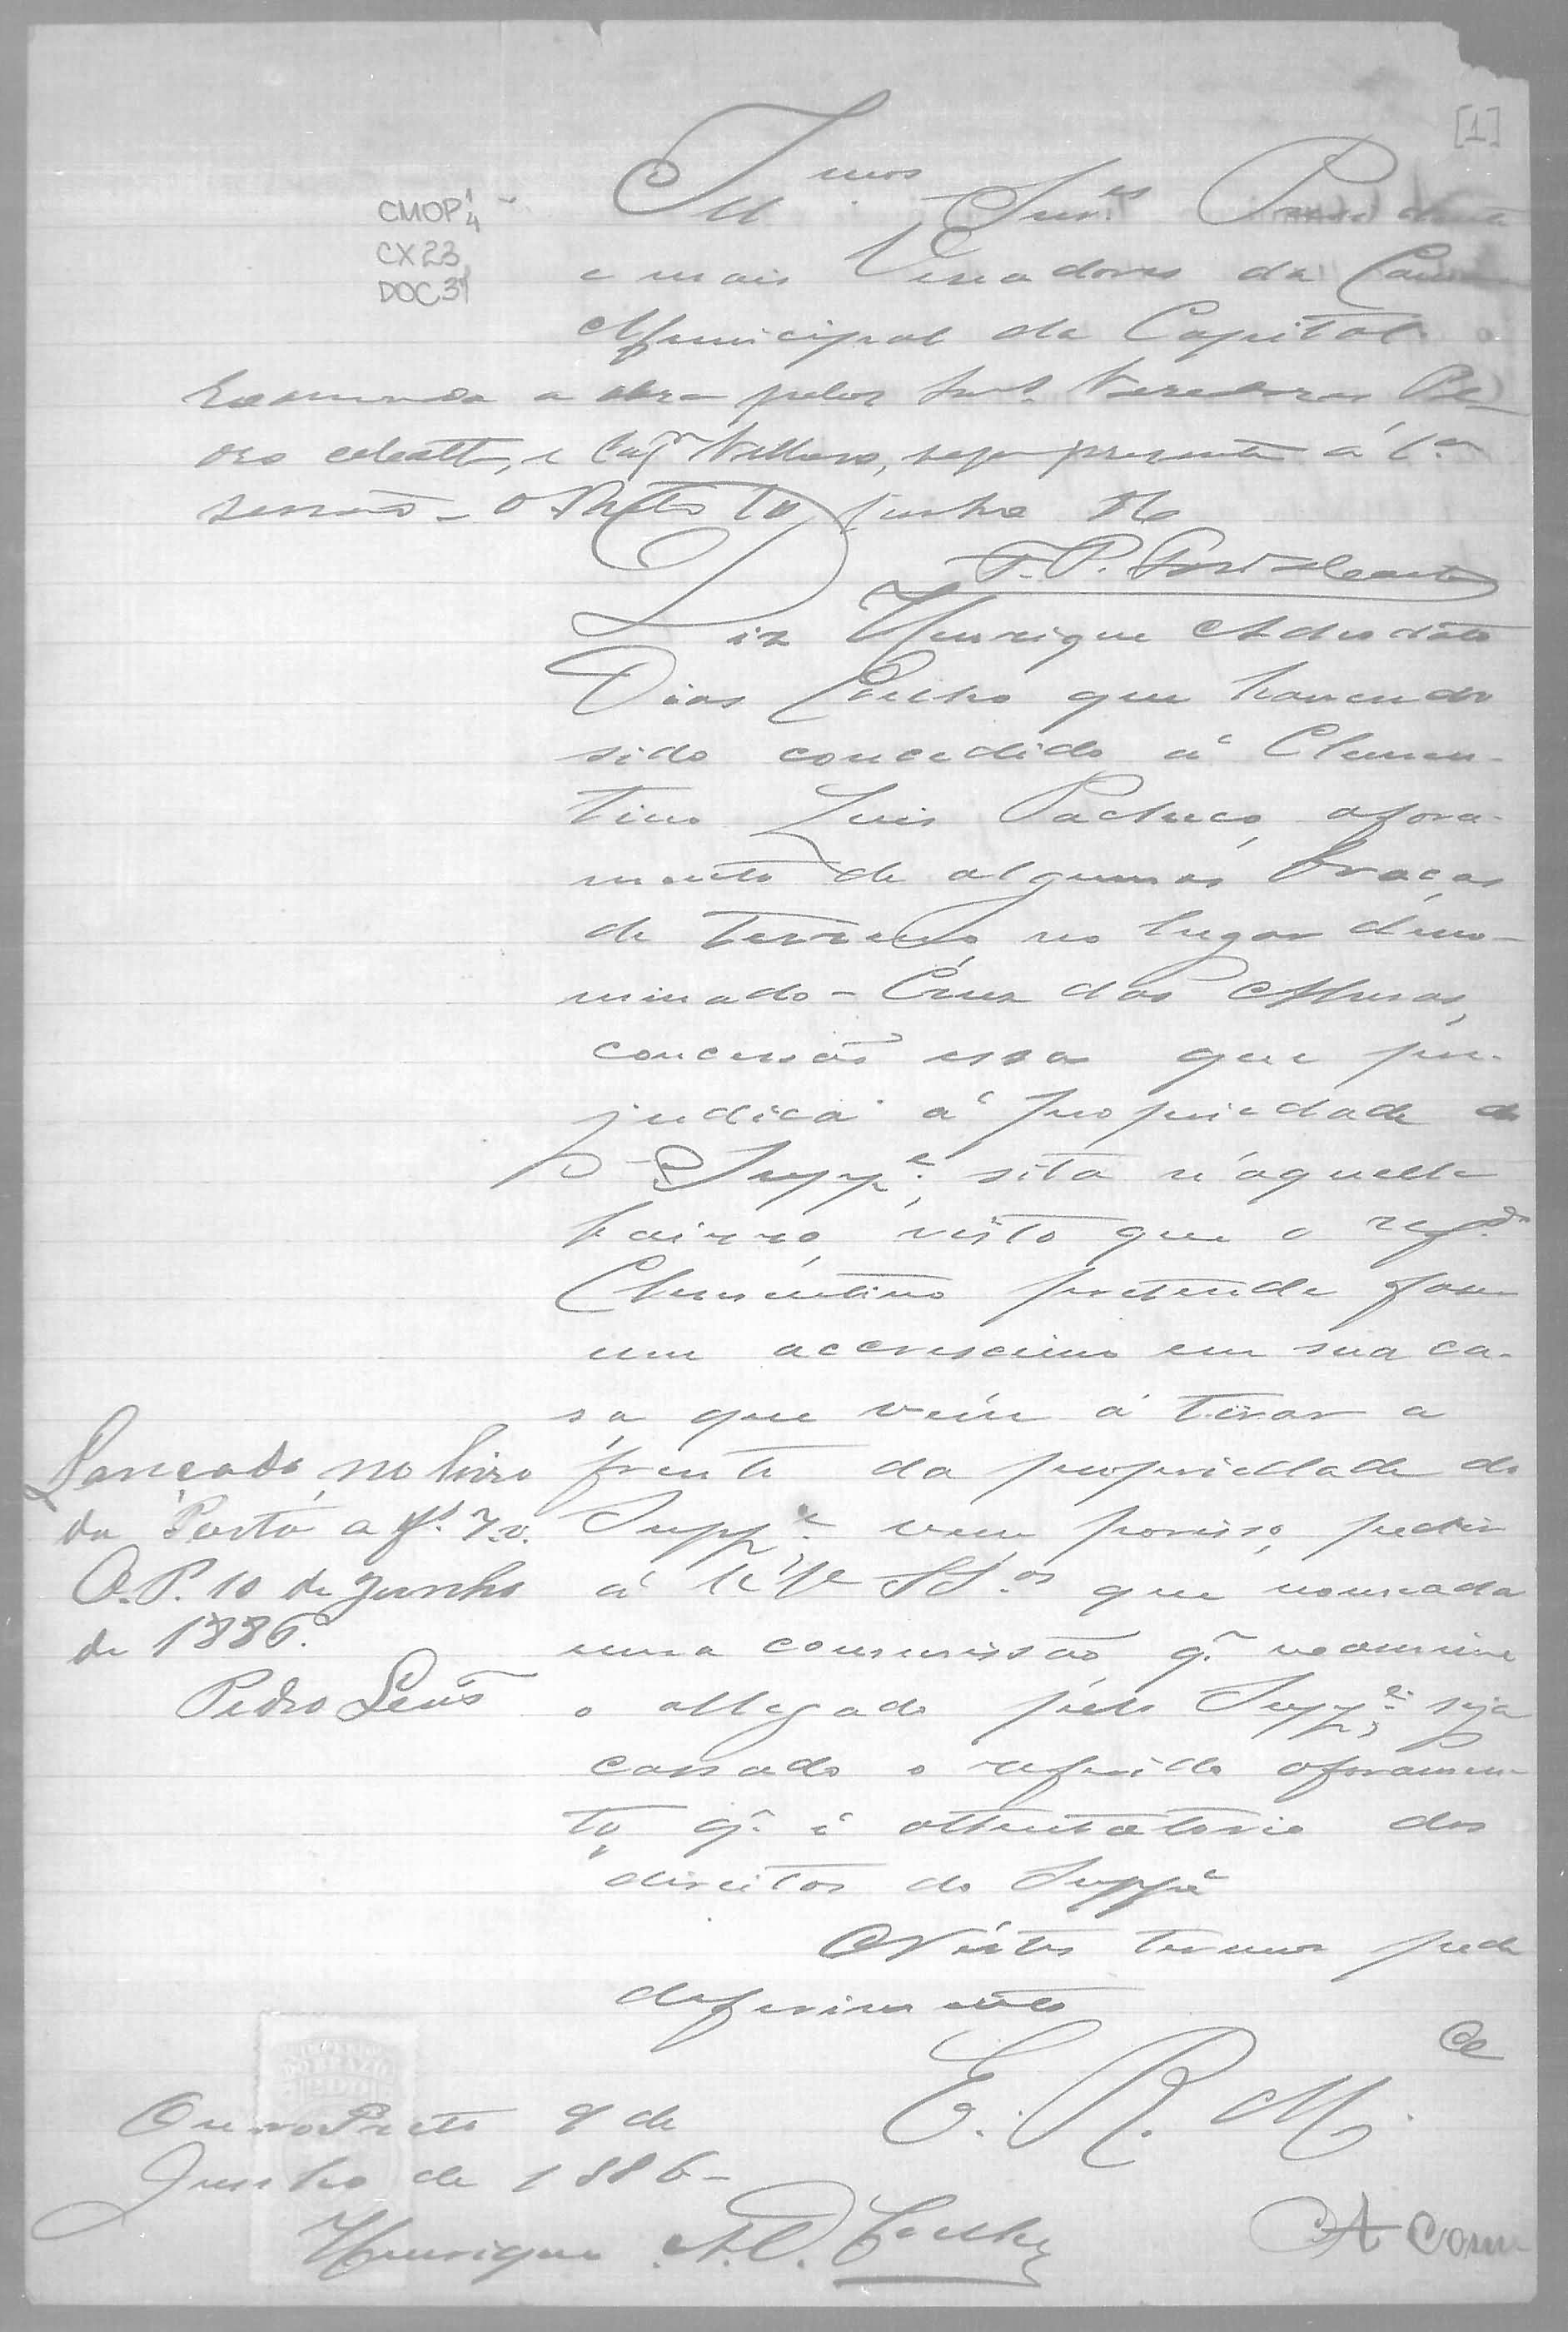 [1]
CMOP 1/4
CX 23
DOC 31
Ill.mos Snr.es Presidente
e mais Vereadores da Camara
Municipal da Capital
Examinada a obra pelos Snrs. Vereadores
seja presente á 1.a
sessão - O Preto 10 Junho 86
Diz Henrique Adeodato
Dias Coelho que havendo
sido concedido á Clemen-
tino Luis Pacheco, afora-
mento de algumas braças
de terreno, no lugar deno-
minado - Cruz das Almas,
concessão essa que pre-
judica á propriedade do
Supp.e, sita n'aquelle
bairro, visto que o ref.do
Clementino pretende fazer
um accrescimo em sua ca-
sa, que vem á tirar a
frente da propriedade do
Supp.e vem, porisso, pedir
á VV SS.as que nomeada
uma commissão q. examine
o allegado pelo Supp.e, seja
cassado o referido aforamen-
to, q. é attentatorio dos
direitos do Supp.e
N'estes termos pede
deferimento
E. R. M.ce
Lançado no livro
da Porta a fs. 7 v.
O. P. 10 de Junho
de 1886.
Pedro Leão
Ouro Preto 9 de
Junho de 1886 -
Henrique A. D. Coelho
A Com